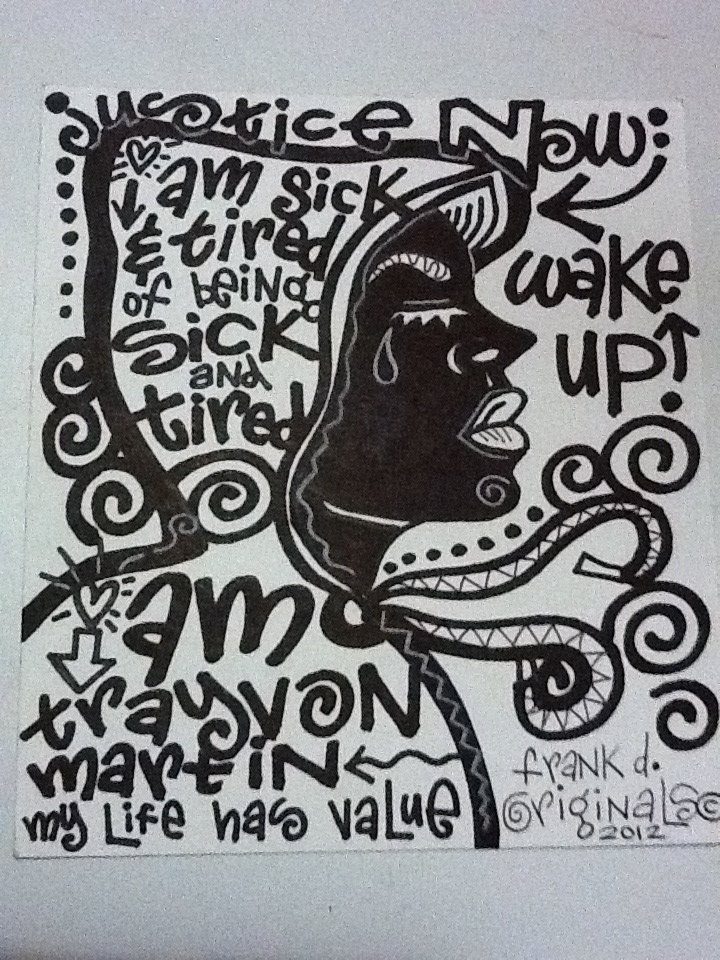 justice Now
i am sick
& tired
of being
sick
and
tired
wake
up!
i am
trayvon
martin
my Life has value
frank d.
originals©
2012